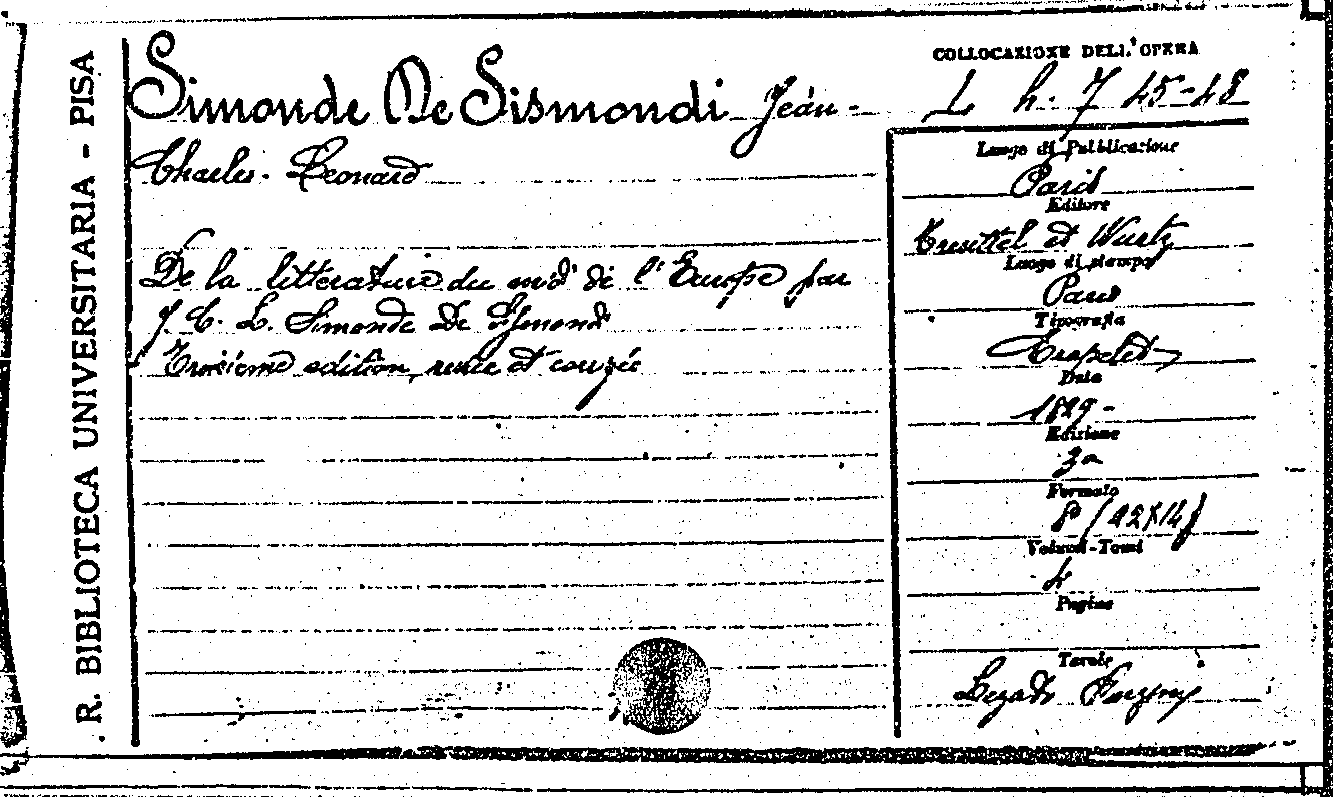 R. BIBLIOTECA UNIVERSITARIA - PISA
Simonde De Sismondi Jean-
Charles-Leonard
De la litterature du midi de l'Europe par
J. C. L. Simonde De Sismondi
Troisieme edition, revue et corrigée
COLLOCAZIONE DELL'OPERA
L h. 7 45-48
Luogo di Pubblicazione
Paris
Editore
Treuttel et Wurtz
Luogo di stampa
Paris
Tipografia
Crapelet
Data
1829-
Edizione
3a
Formato
8° (22x14)
Volumi-Tomi
4
Pagine
Tavole
Legato